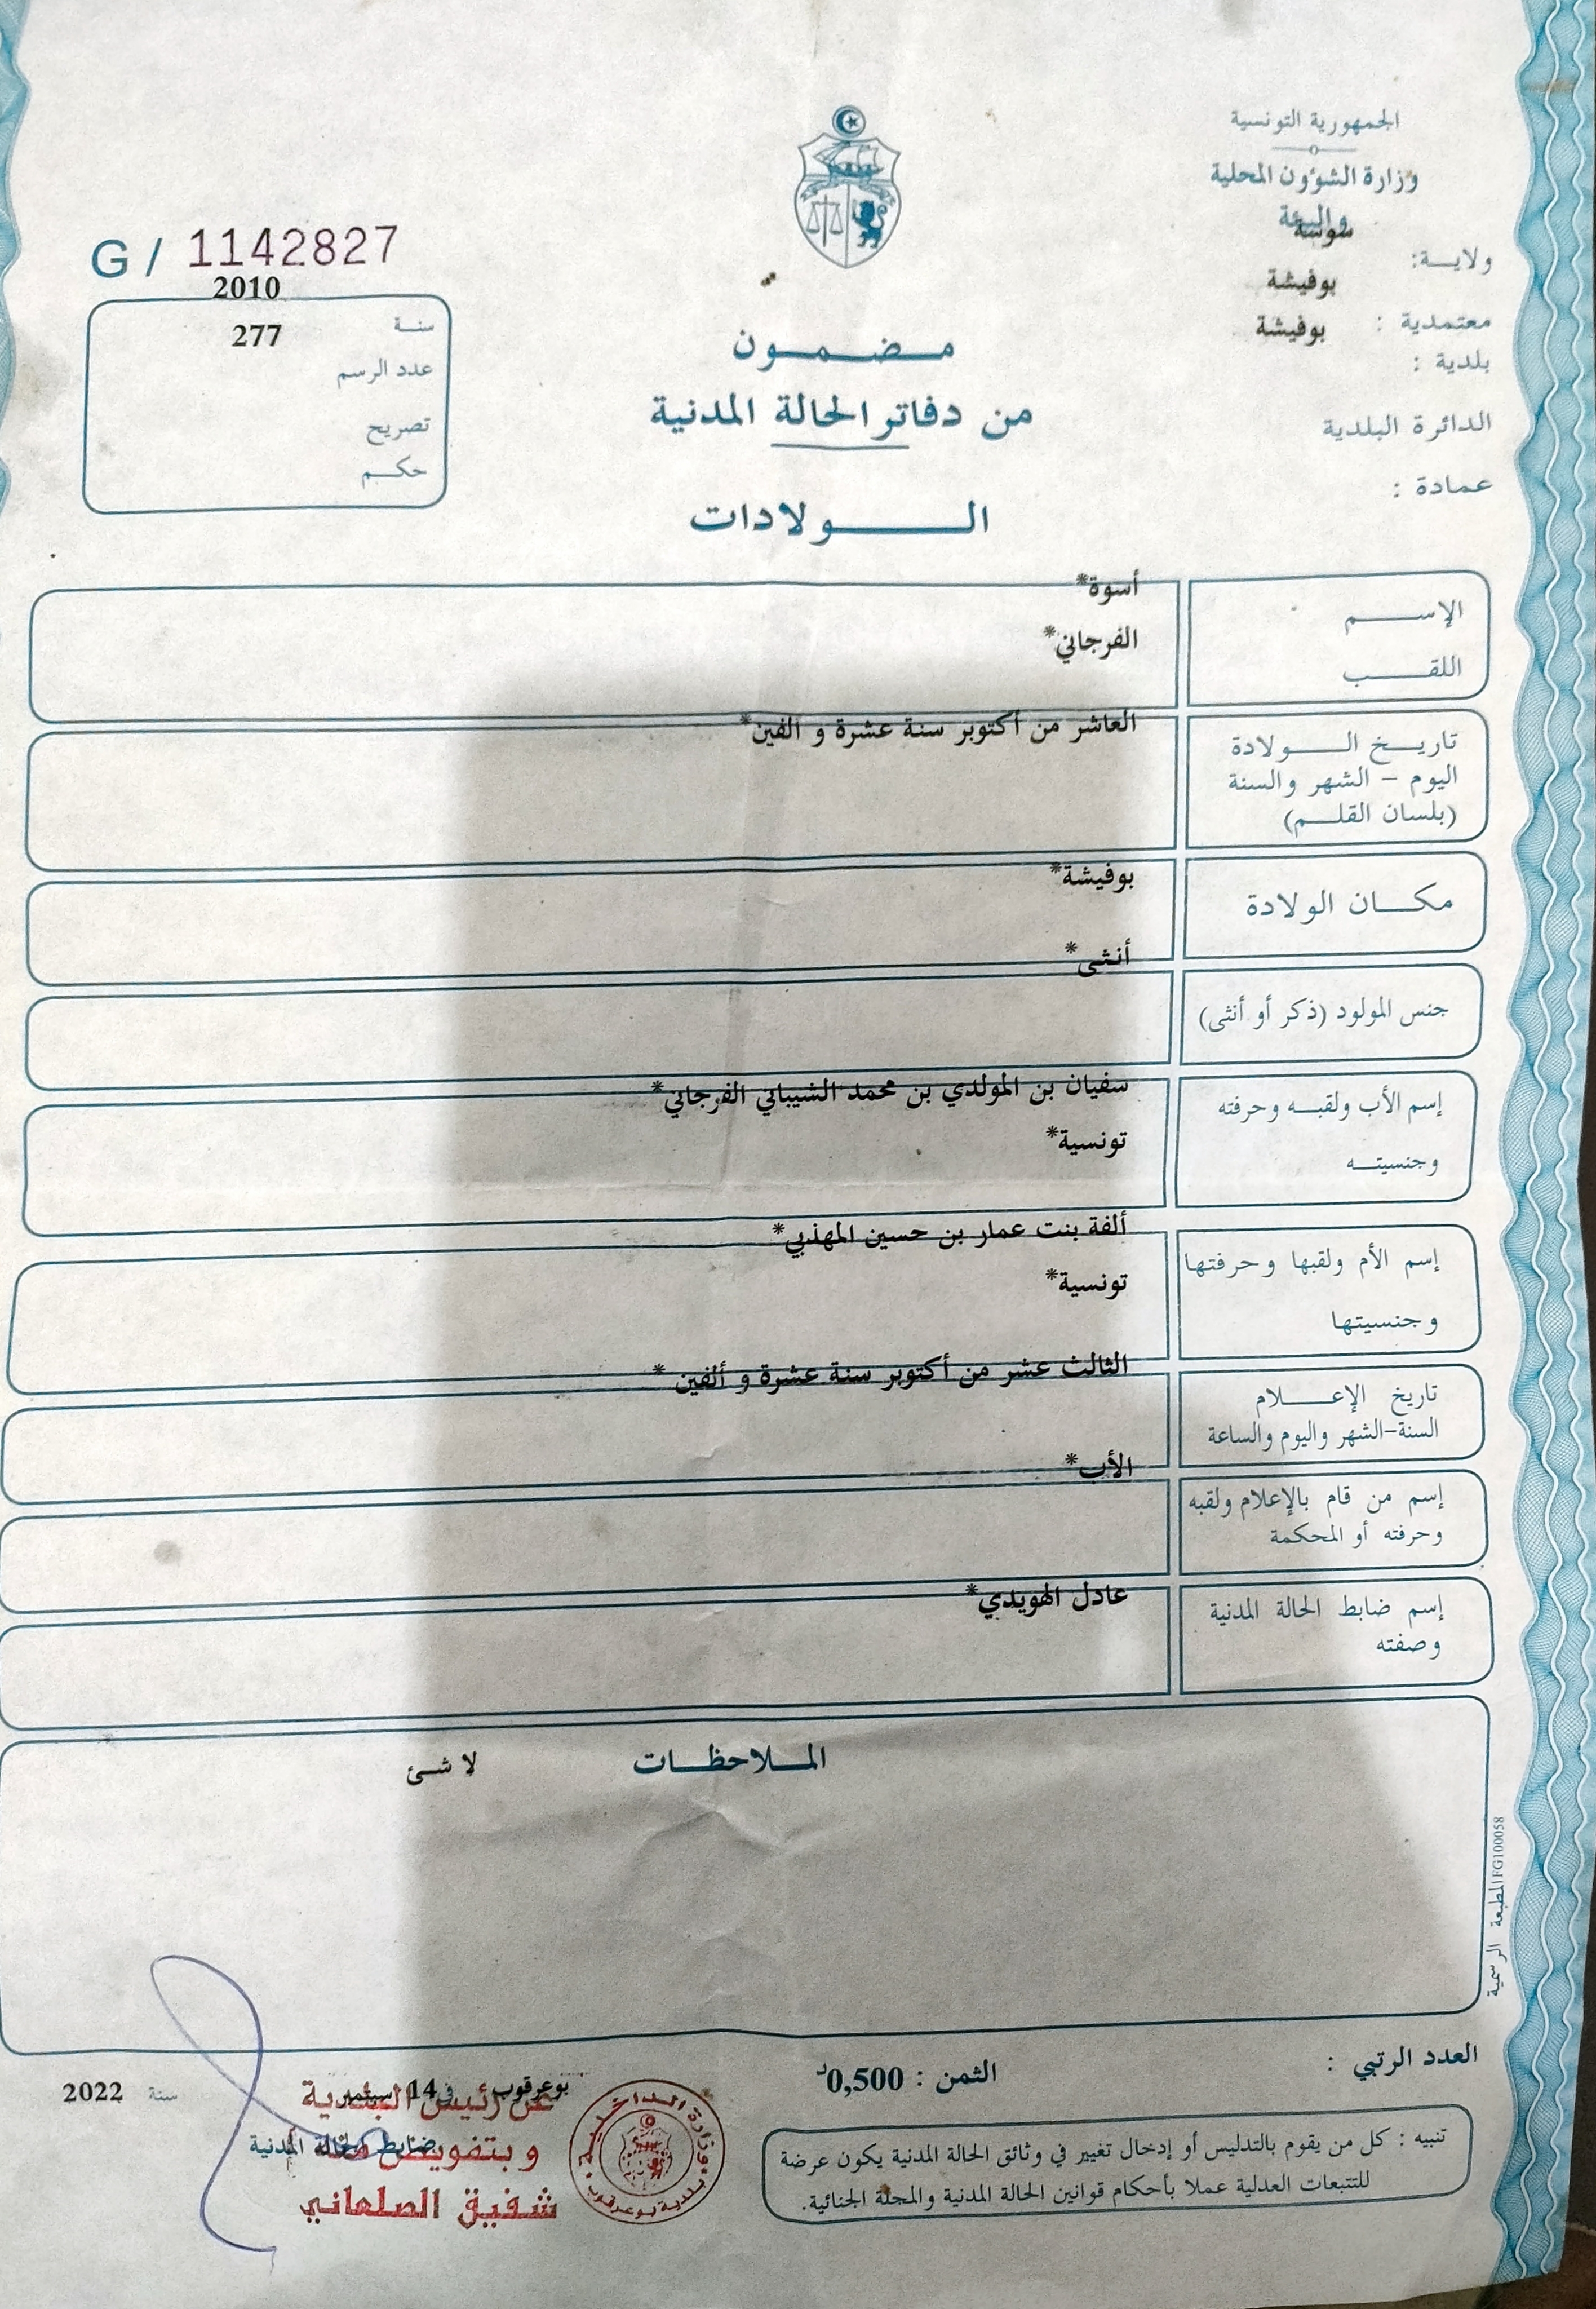 الجمهورية التونسية
وزارة الشؤون المحلية
والبيئة
ولاية: سوسة
معتمدية : بوفيشة
بلدية : بوفيشة
الدائرة البلدية
عمادة :
G / 1142827
سنة 2010
عدد الرسم 277
تصريح
حكم
مضمون
من دفاتر الحالة المدنية
الولادات
الإسم أسوة*
اللقب الفرجاني*
تاريخ الولادة العاشر من أكتوبر سنة عشرة و الفين*
اليوم - الشهر والسنة
(بلسان القلم)
مكان الولادة بوفيشة*
جنس المولود (ذكر أو أنثى) أنثى*
إسم الأب ولقبه وحرفته سفيان بن المولدي بن محمد الشيباني الفرجاني*
وجنسيته تونسية*
إسم الأم ولقبها وحرفتها ألفة بنت عمار بن حسين المهذبي*
وجنسيتها تونسية*
تاريخ الإعلام الثالث عشر من أكتوبر سنة عشرة و ألفين *
السنة-الشهر واليوم والساعة
إسم من قام بالإعلام ولقبه الأب*
وحرفته أو المحكمة
إسم ضابط الحالة المدنية عادل الهويدي*
وصفته
الملاحظات لا شئ
المطبعة الرسمية FG100058
العدد الرتبي :
الثمن : 0,500د
بوعرقوب في 14 سبتمبر سنة 2022
ضابط الحالة المدنية
عن رئيس البلدية
و بتفويض منه
شفيق الصلعاني
وزارة الداخلية
بلدية بوعرقوب
تنبيه : كل من يقوم بالتدليس أو إدخال تغيير في وثائق الحالة المدنية يكون عرضة
للتتبعات العدلية عملا بأحكام قوانين الحالة المدنية والمجلة الجنائية.